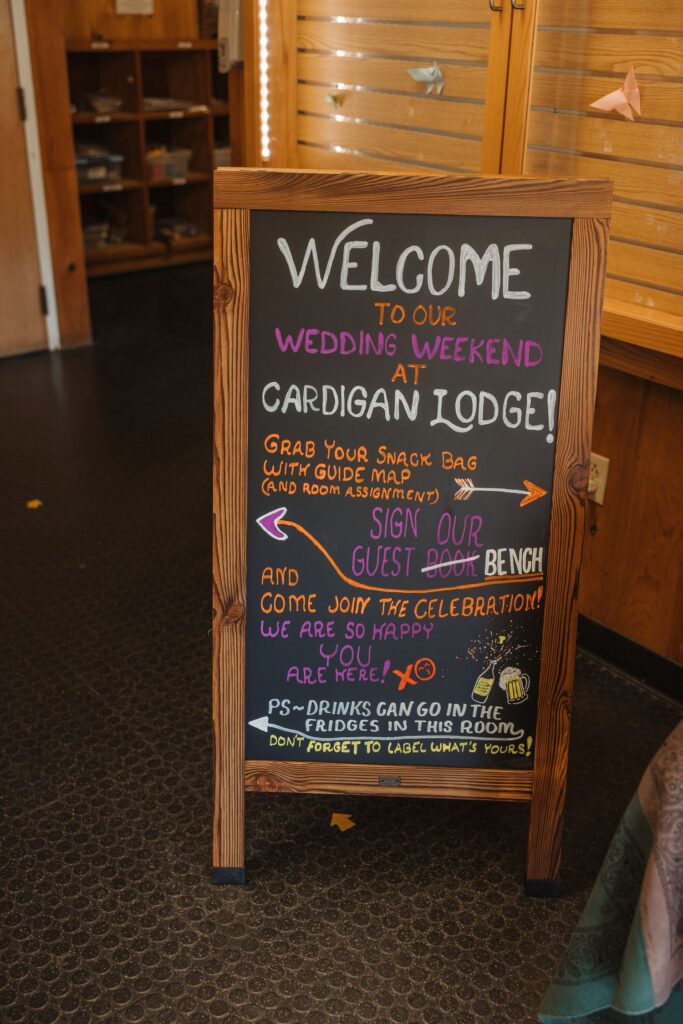 WELCOME
TO OUR
WEDDING WEEKEND
AT
CARDIGAN LODGE!
GRAB YOUR SNACK BAG
WITH GUIDE MAP
(AND ROOM ASSIGNMENT)
SIGN OUR
GUEST BOOK BENCH
AND
COME JOIN THE CELEBRATION!
WE ARE SO HAPPY
YOU
ARE HERE! XO
PS~DRINKS CAN GO IN THE
FRIDGES IN THIS ROOM
DON'T FORGET TO LABEL WHAT'S YOURS!